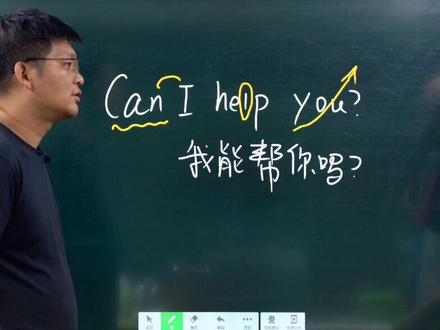 Can I help you?
我能帮你吗?